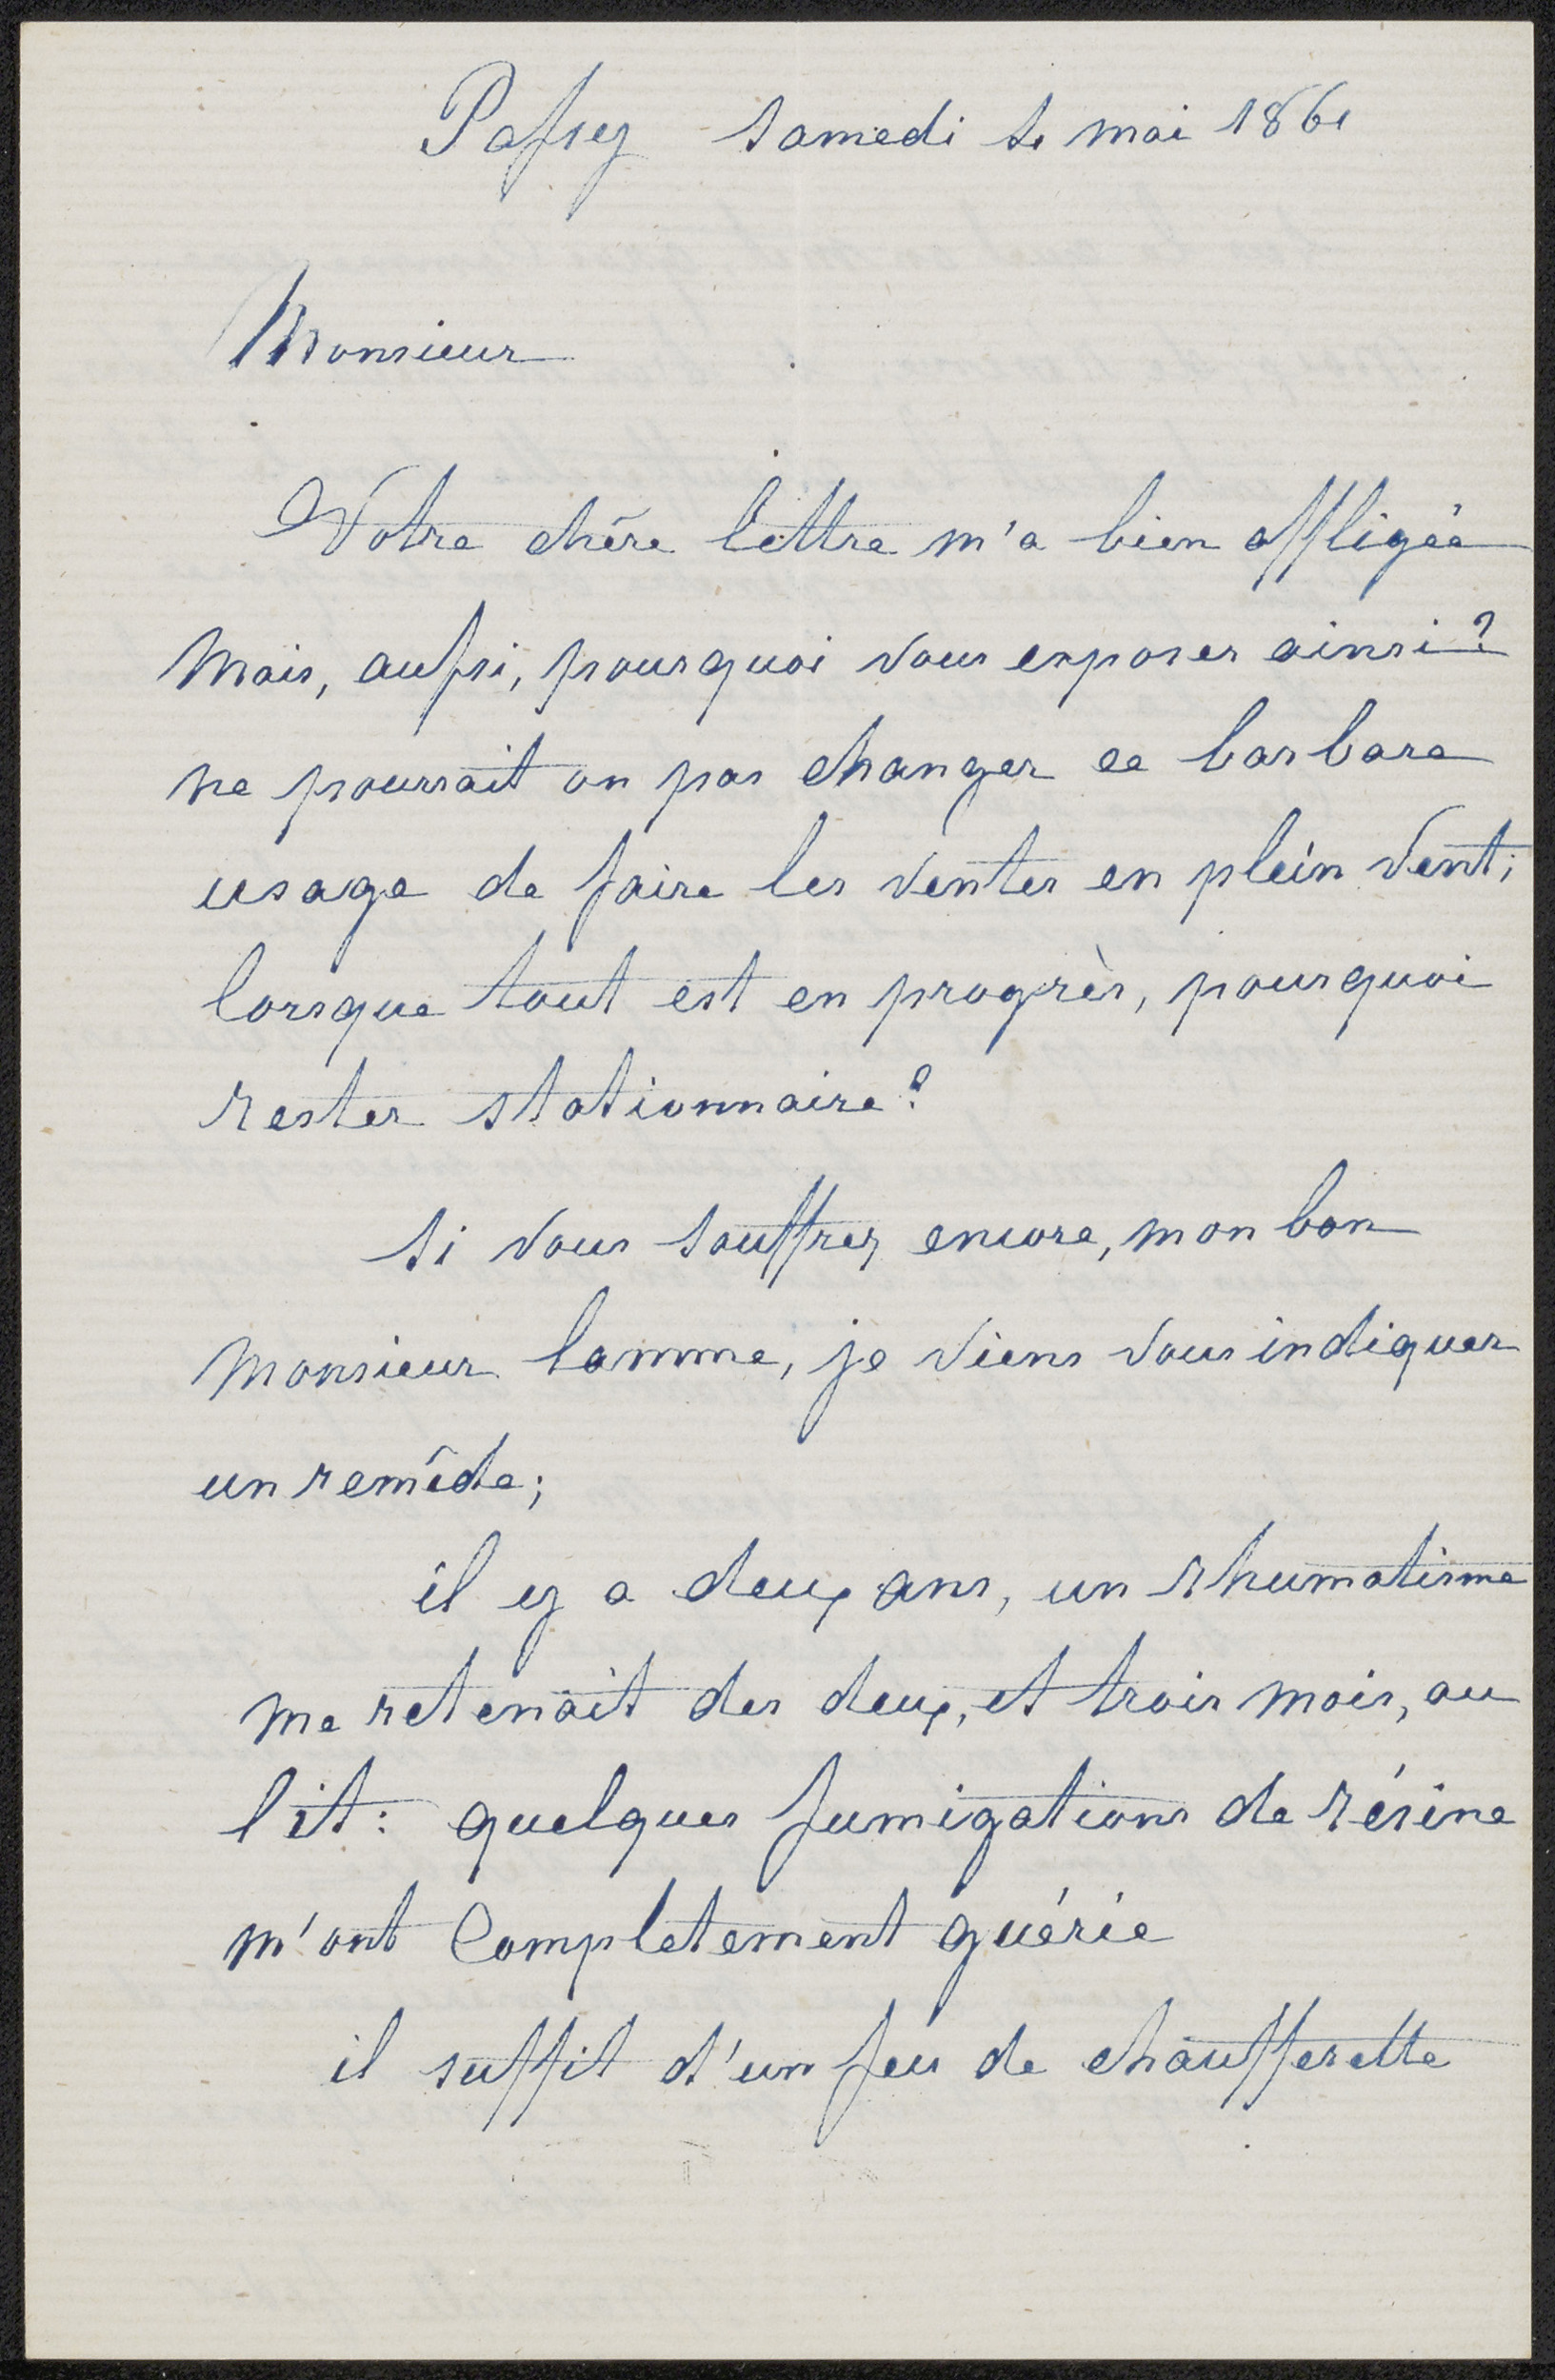 Passey samedi mai 1861
Monsieur
Votre chère lettre m'a bien affligée
Mais, aussi, pourquoi vous exposer ainsi?
ne pourrait on pas changer ce barbare
usage de faire les ventes en plein vent;
lorsque tout est en progrès, pourquoi
rester stationnaire?
si vous souffrez encore, mon bon
Monsieur lamme, je viens vous indiquer
un remède;
il y a deux ans, un rhumatisme
me retenait des deux, et trois mois, au
lit: quelques fumigations de résine
m'ont completement guérie
il suffit d'un feu de chaufferette